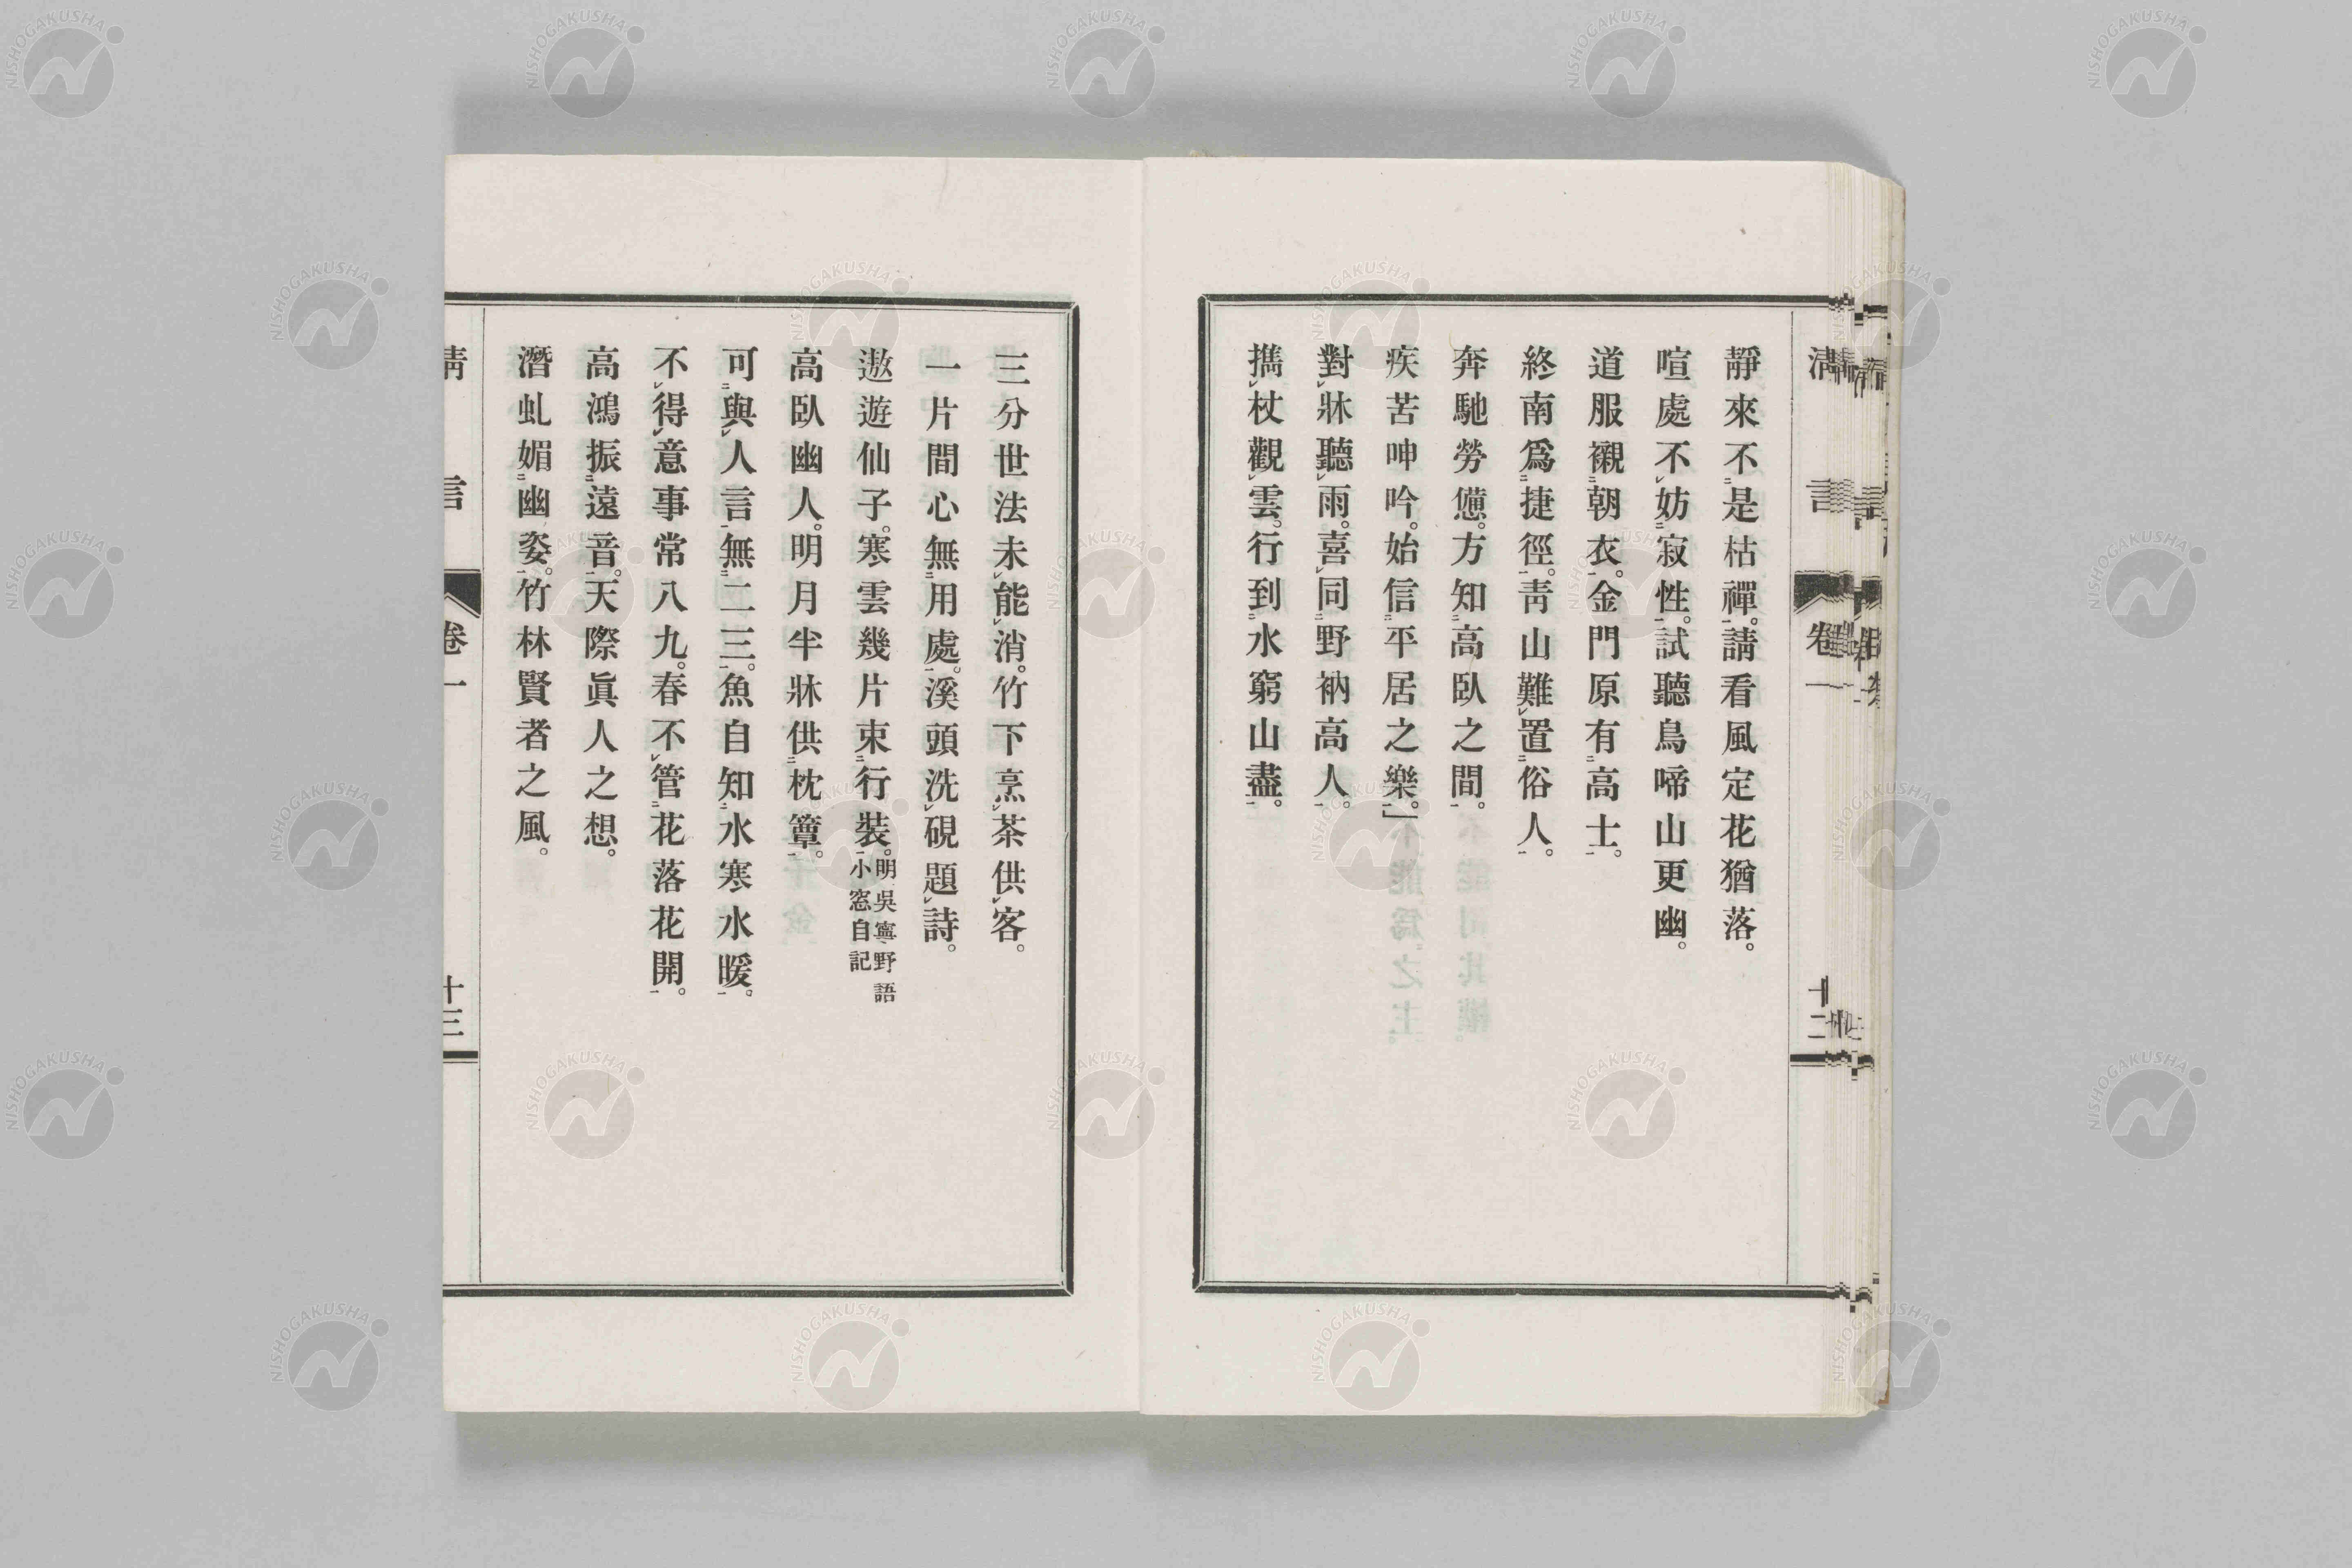 清言 卷一 十二
靜來不是枯禪。請看風定花猶落。
喧處不妨寂性。試聽鳥啼山更幽。
道服襯朝衣。金門原有高士。
終南爲捷徑。靑山難置俗人。
奔馳勞憊。方知高臥之間。
疾苦呻吟。始信平居之樂。」
對牀聽雨。喜同野衲高人。
擕杖觀雲。行到水窮山盡。
三分世法未能消。竹下烹茶供客。
一片間心無用處。溪頭洗硯題詩。
遨遊仙子。寒雲幾片束行裝。明吳寧野語小窓自記
高臥幽人。明月半牀供枕簟。
可與人言無二三。魚自知水寒水暖。
不得意事常八九。春不管花落花開。
高鴻振遠音。天際眞人之想。
潛虬媚幽姿。竹林賢者之風。
淸言 卷一 十三
NISHOGAKUSHA